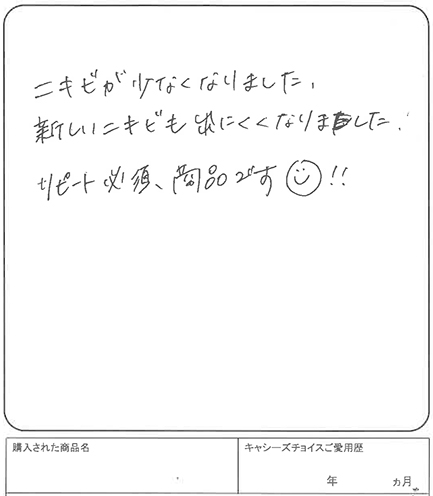 ニキビが少なくなりました。
新しいニキビも出にくくなりました。
リピート必須、商品です☺!!
購入された商品名
キャシーズチョイスご愛用歴
年 ヵ月